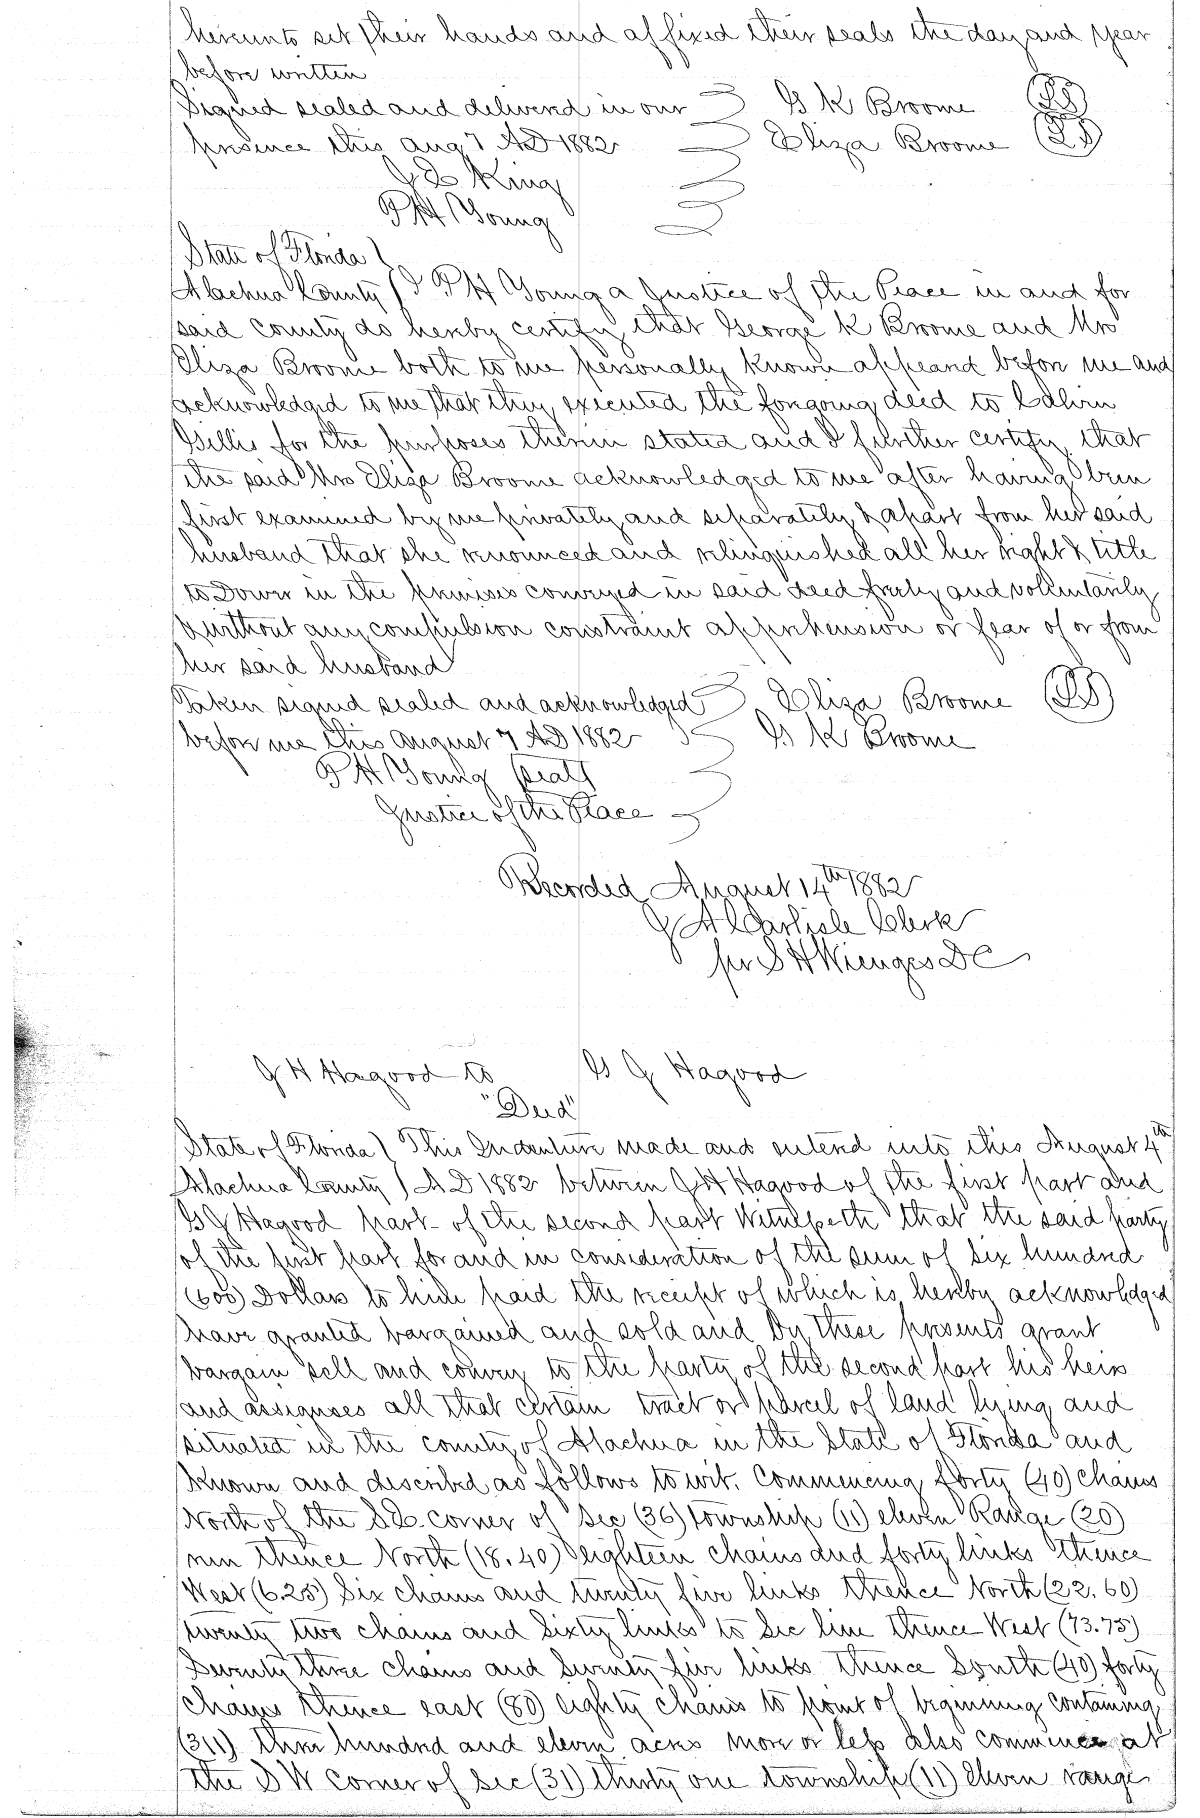 hereunto set their hands and affixed their seals the day and year
before written
Signed sealed and delivered in our G K Broome LS
presence this Aug 7 AD 1882 Eliza Broome LS
J E King
P H Young
State of Florida
Alachua County I P H Young a Justice of the Peace in and for
said County do hereby certify that George K Broome and Mrs
Eliza Broome both to me personally known appeard before me and
acknowledged to me that they executed the foregoing deed to Calvin
Gillis for the purposes therein stated and I further certify that
the said Mrs Eliza Broome acknowledged to me after having been
first examined by me privately and separately & apart from her said
husband that she renounced and relinquished all her right & title
to Dower in the premises conveyed in said deed freely and voluntarily
& without any compulsion constraint apprehension or fear of or from
her said husband
Taken signed sealed and acknowledged Eliza Broome LS
before me this August 7 AD 1882 G K Broome
P H Young (seal)
Justice of the Peace
Recorded August 14th 1882
J A Carlisle Clerk
per S H Wienges DC
J H Hagood to G J Hagood
"Deed"
State of Florida ( This Indenture made and entered into this August 4th
Alachua County ) A D 1882 between J H Hagood of the first part and
G J Hagood part- of the second part Witnesseth that the said party
of the first part for and in consideration of the sum of six hundred
(600) Dollars to him paid the receipt of which is hereby acknowledged
have granted bargained and sold and by these presents grant
bargain sell and convey to the party of the second part his heirs
and assignees all that certain tract or parcel of land lying and
situated in the county of Alachua in the State of Florida and
known and described as follows to wit. Commencing forty (40) chains
North of the SE corner of Sec (36) township (11) eleven Range (20)
run thence North (18.40) eighteen chains and forty links thence
West (6.25) Six chains and twenty five links thence North (22.60)
twenty two chains and Sixty links to Sec line thence West (73.75)
Seventy three chains and Seventy five links thence South (40) forty
chains thence east (80) eighty chains to point of beginning containing
(311) three hundred and eleven acres more or less also commence at
the SW corner of Sec (31) thirty one township (11) eleven range